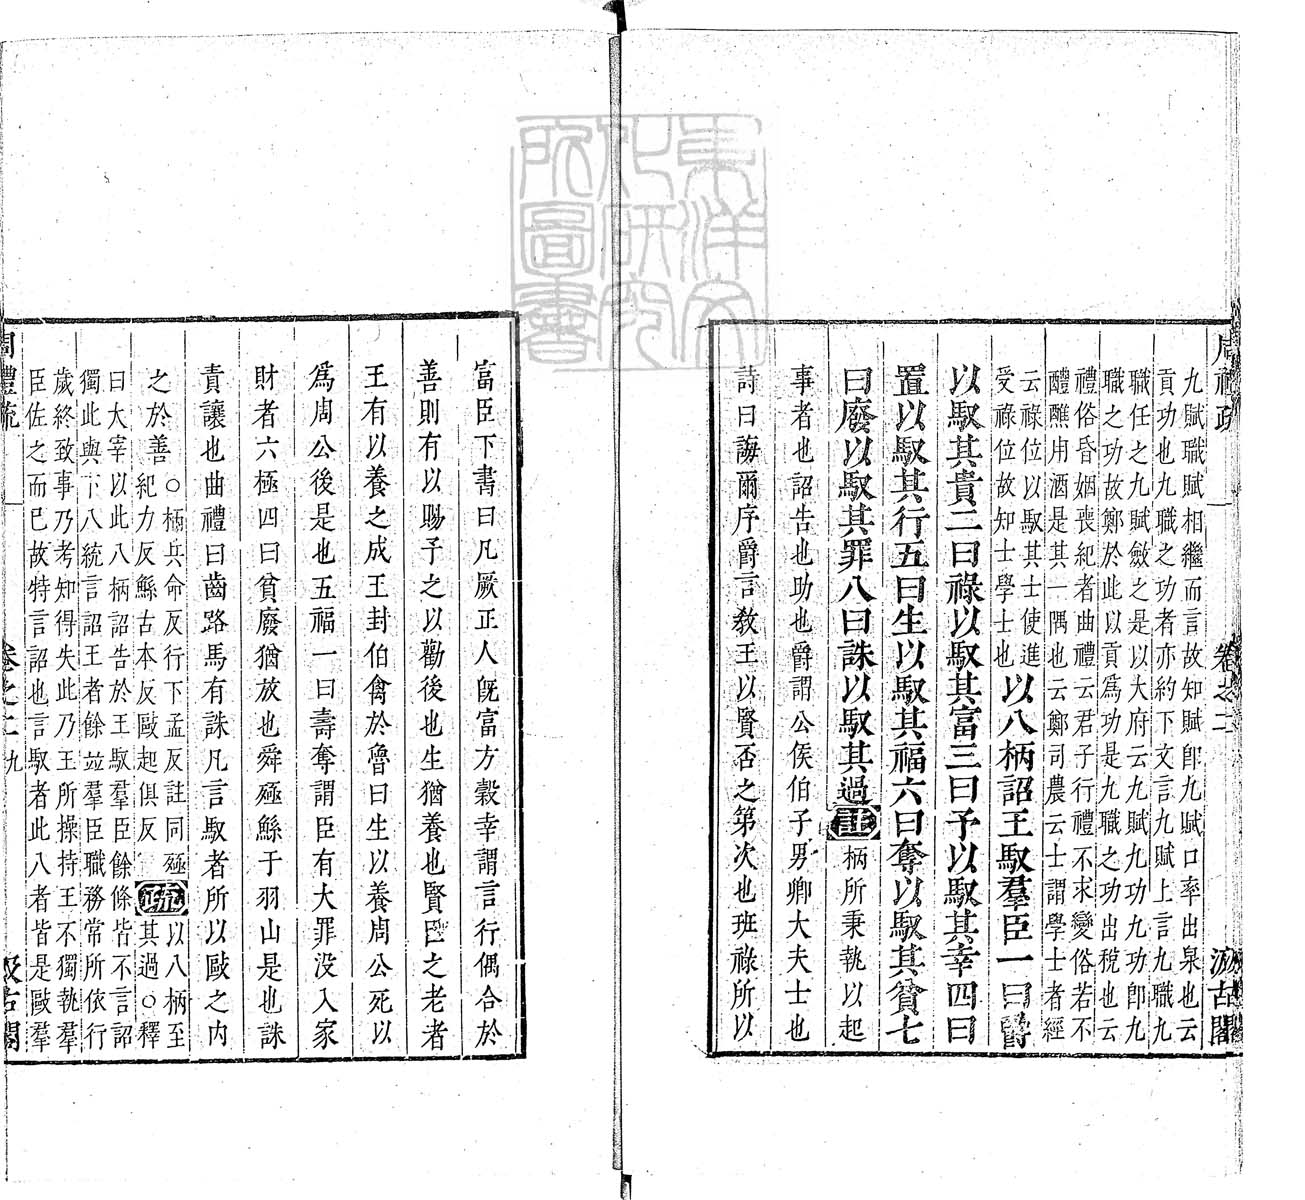 周禮疏
卷之二
汲古閣
九賦職賦相繼而言故知賦卽九賦口率出泉也云
貢功也九職之功者亦約下文言九賦上言九職九
職任之九賦斂之是以大府云九賦九功九功卽九
職之功故鄭於此以貢爲功是九職之功出稅也云
禮俗昏姻喪紀者曲禮云君子行禮不求變俗若不
醴醮用酒是其一隅也云鄭司農云士謂學士者經
云祿位以馭其士使進
受祿位故知士學士也
以八柄詔王馭羣臣一曰爵
以馭其貴二曰祿以馭其富三曰予以馭其幸四曰
置以馭其行五曰生以馭其福六曰奪以馭其貧七
曰廢以馭其罪八曰誅以馭其過註柄所秉執以起
事者也詔告也助也爵謂公侯伯子男卿大夫士也
詩曰誨爾序爵言敎王以賢否之第次也班祿所以
富臣下書曰凡厥正人旣富方穀幸謂言行偶合於
善則有以賜予之以勸後也生猶養也賢臣之老者
王有以養之成王封伯禽於魯曰生以養周公死以
爲周公後是也五福一曰壽奪謂臣有大罪没入家
財者六極四曰貧廢猶放也舜殛鯀于羽山是也誅
責讓也曲禮曰齒路馬有誅凡言馭者所以毆之内
之於善○柄兵命反行下孟反註同殛
紀力反鯀古本反毆起俱反
疏
以八柄至
其過○釋
曰大宰以此八柄詔告於王馭羣臣餘條皆不言詔
獨此與下八統言詔王者餘並羣臣職務常所依行
歲終致事乃考知得失此乃王所操持王不獨執羣
臣佐之而已故特言詔也言馭者此八者皆是毆羣
周禮疏
卷之二
九
汲古閣
東洋文
化研究
所圖書